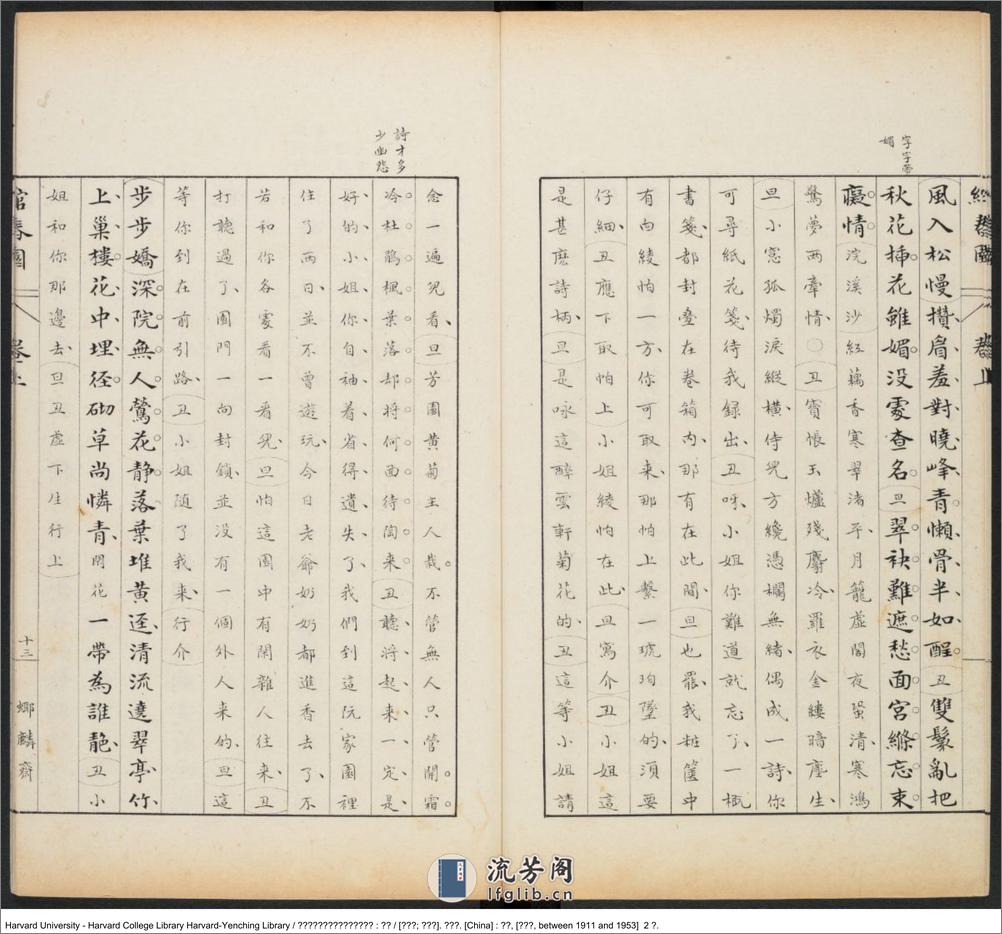 綰春園 卷上
字字帶
媚
風入松慢攢眉羞對曉峰青懶骨半如醒丑雙鬟亂把
秋花揷花雖媚没處查名旦翠袂難遮愁面宮縧忘束
㾕情浣溪沙紅藕香寒翠渚平月籠虛閣夜蛩清寒鴻
驚夢兩牽情〇丑寳帳玉爐殘麝冷羅衣金縷暗塵生
旦小窓孤燭淚縱横侍兒方纔憑欄無緒偶成一詩你
可尋紙花箋待我録出丑呀小姐你難道就忘了一概
書箋都封叠在卷箱内那有在此間旦也罷我粧篋中
有白綾怕一方你可取來那怕上繫一琥珀墜的須要
仔細丑應下取怕上小姐綾怕在此旦寫介丑小姐這
是甚麽詩柄旦是咏這醉雲軒菊花的丑這等小姐請
詩才多
少幽怨
念一遍兒看旦芳園黄菊主人栽不管無人只管開霜
冷杜鵑楓葉落却將何面待陶來丑聽將起來一定是
好的小姐你自袖着省得遺失了我們到這阮家園裡
住了兩日並不曾遊玩今日老爺奶奶都進香去了不
若和你各處看一看兒旦怕這園中有閑雜人往來丑
打聽過了園門一向封鎖並没有一個外人來的旦這
等你到在前引路丑小姐随了我來行介
步步嬌深院無人鶯花静落葉堆黄逕清流遶翠亭竹
上巢棲花中埋径砌草尚憐青閑花一帶為誰靘丑小
姐和你那邊去旦丑虛下生行上
綰春園 卷上 十三 螂麟齋
流芳阁
lfglib.cn
Harvard University - Harvard College Library Harvard-Yenching Library / ??????????????? : ?? / [???; ???]. ???. [China] : ??, [???, between 1911 and 1953] 2 ?.